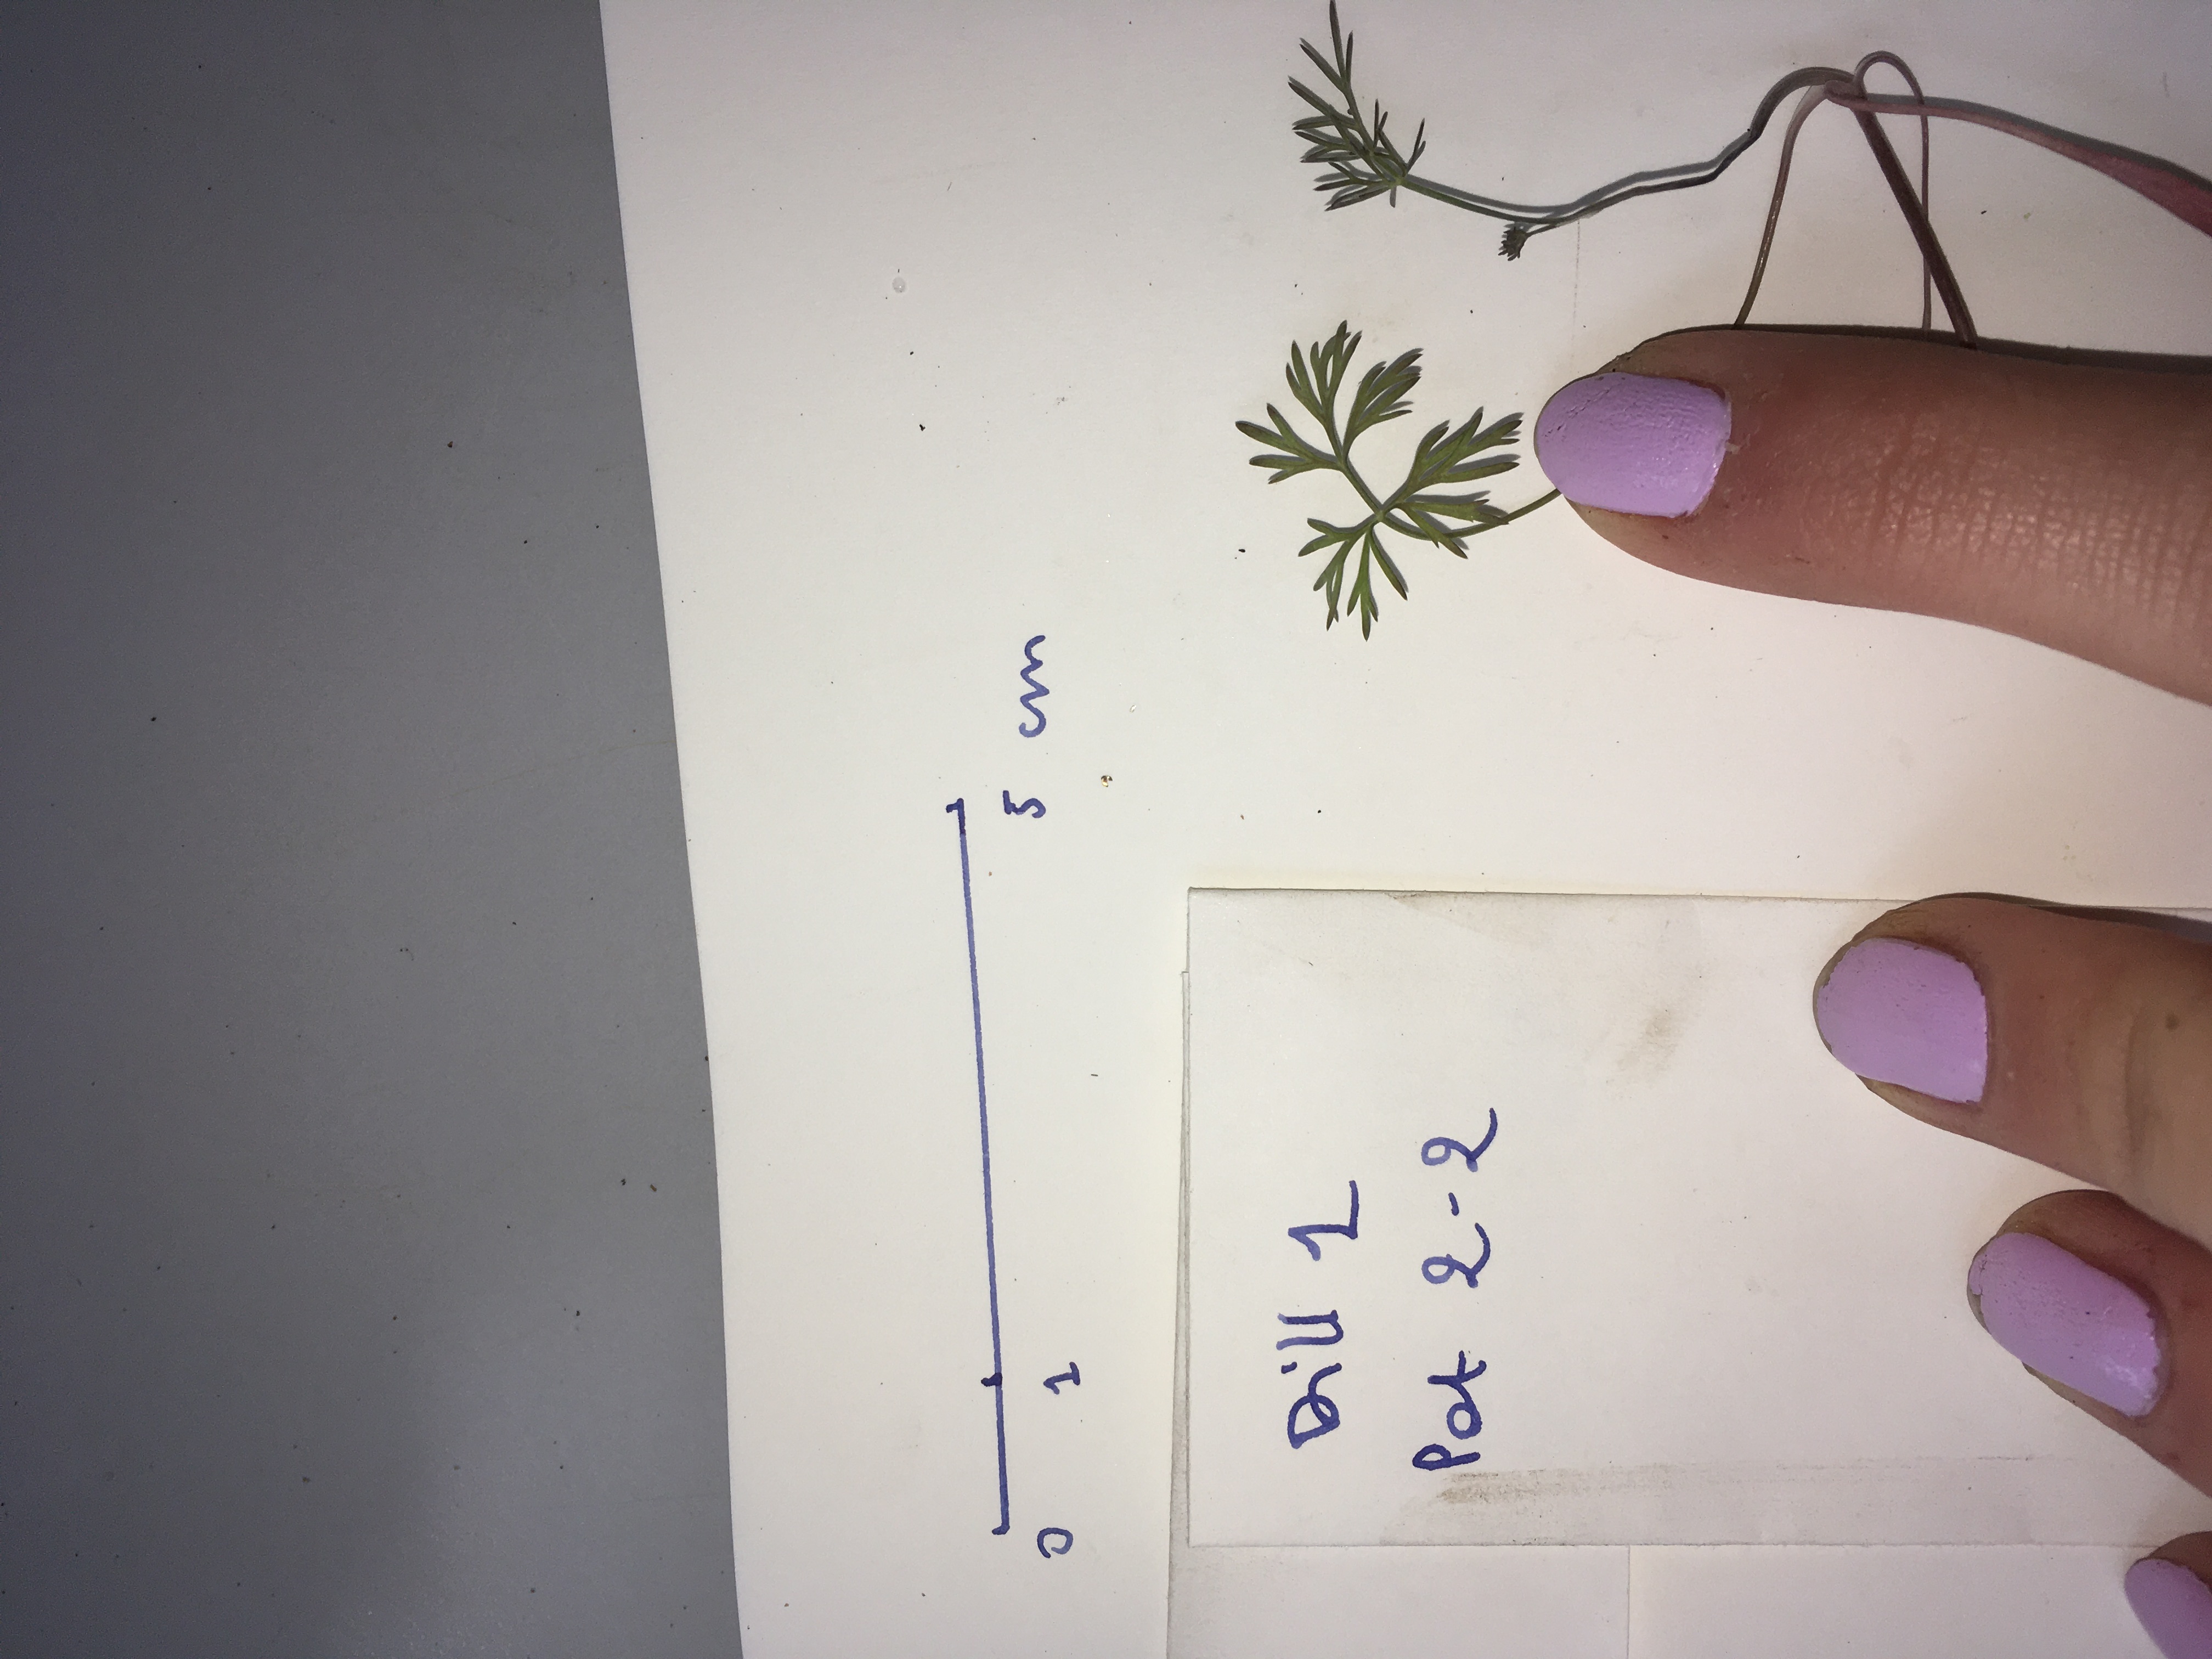 0 1 5 cm
Dill 1
Pot 2-2